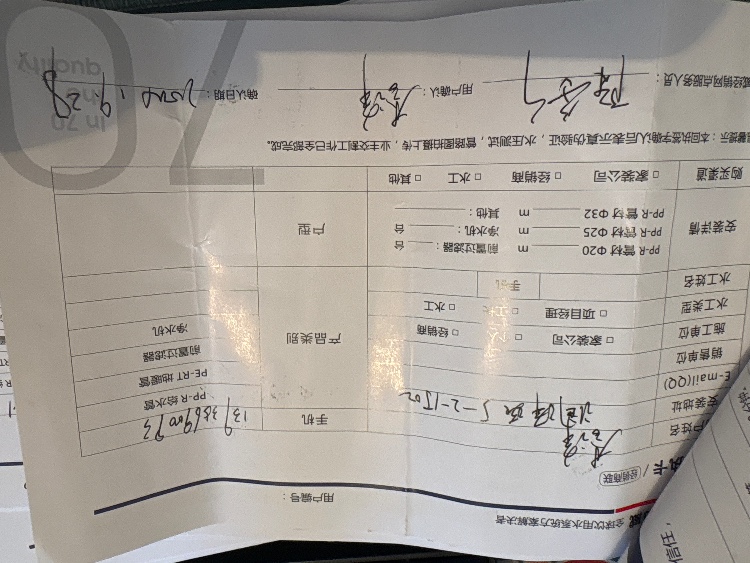 全球饮用水系统方案解决者
用户编号：
执卡 / 经销商联
户姓名
手机 139 3869 0093
安装地址 5-2-1502
E-mail(QQ)
销售单位
施工单位 □ 家装公司 □ □ 经销商
水工类型 □ 项目经理 □ □ 水工
水工姓名 手机
产品类别
PP-R 给水管
PE-RT 地暖管
前置过滤器
净水机
安装详情
PP-R 管材 Φ20 m 前置过滤器： 台
PP-R 管材 Φ25 m 净水机： 台
PP-R 管材 Φ32 m 其他：
户型
购买渠道 □ 家装公司 □ 经销商 □ 水工 □ 其他
馨提示：本回执签字确认后表示真伪验证，水压测试，管路图拍摄上传，业主交割工作已全部完成。
威经销网点服务人员：
用户确认：
确认日期： 9.28
In 70
quality
70
信任，